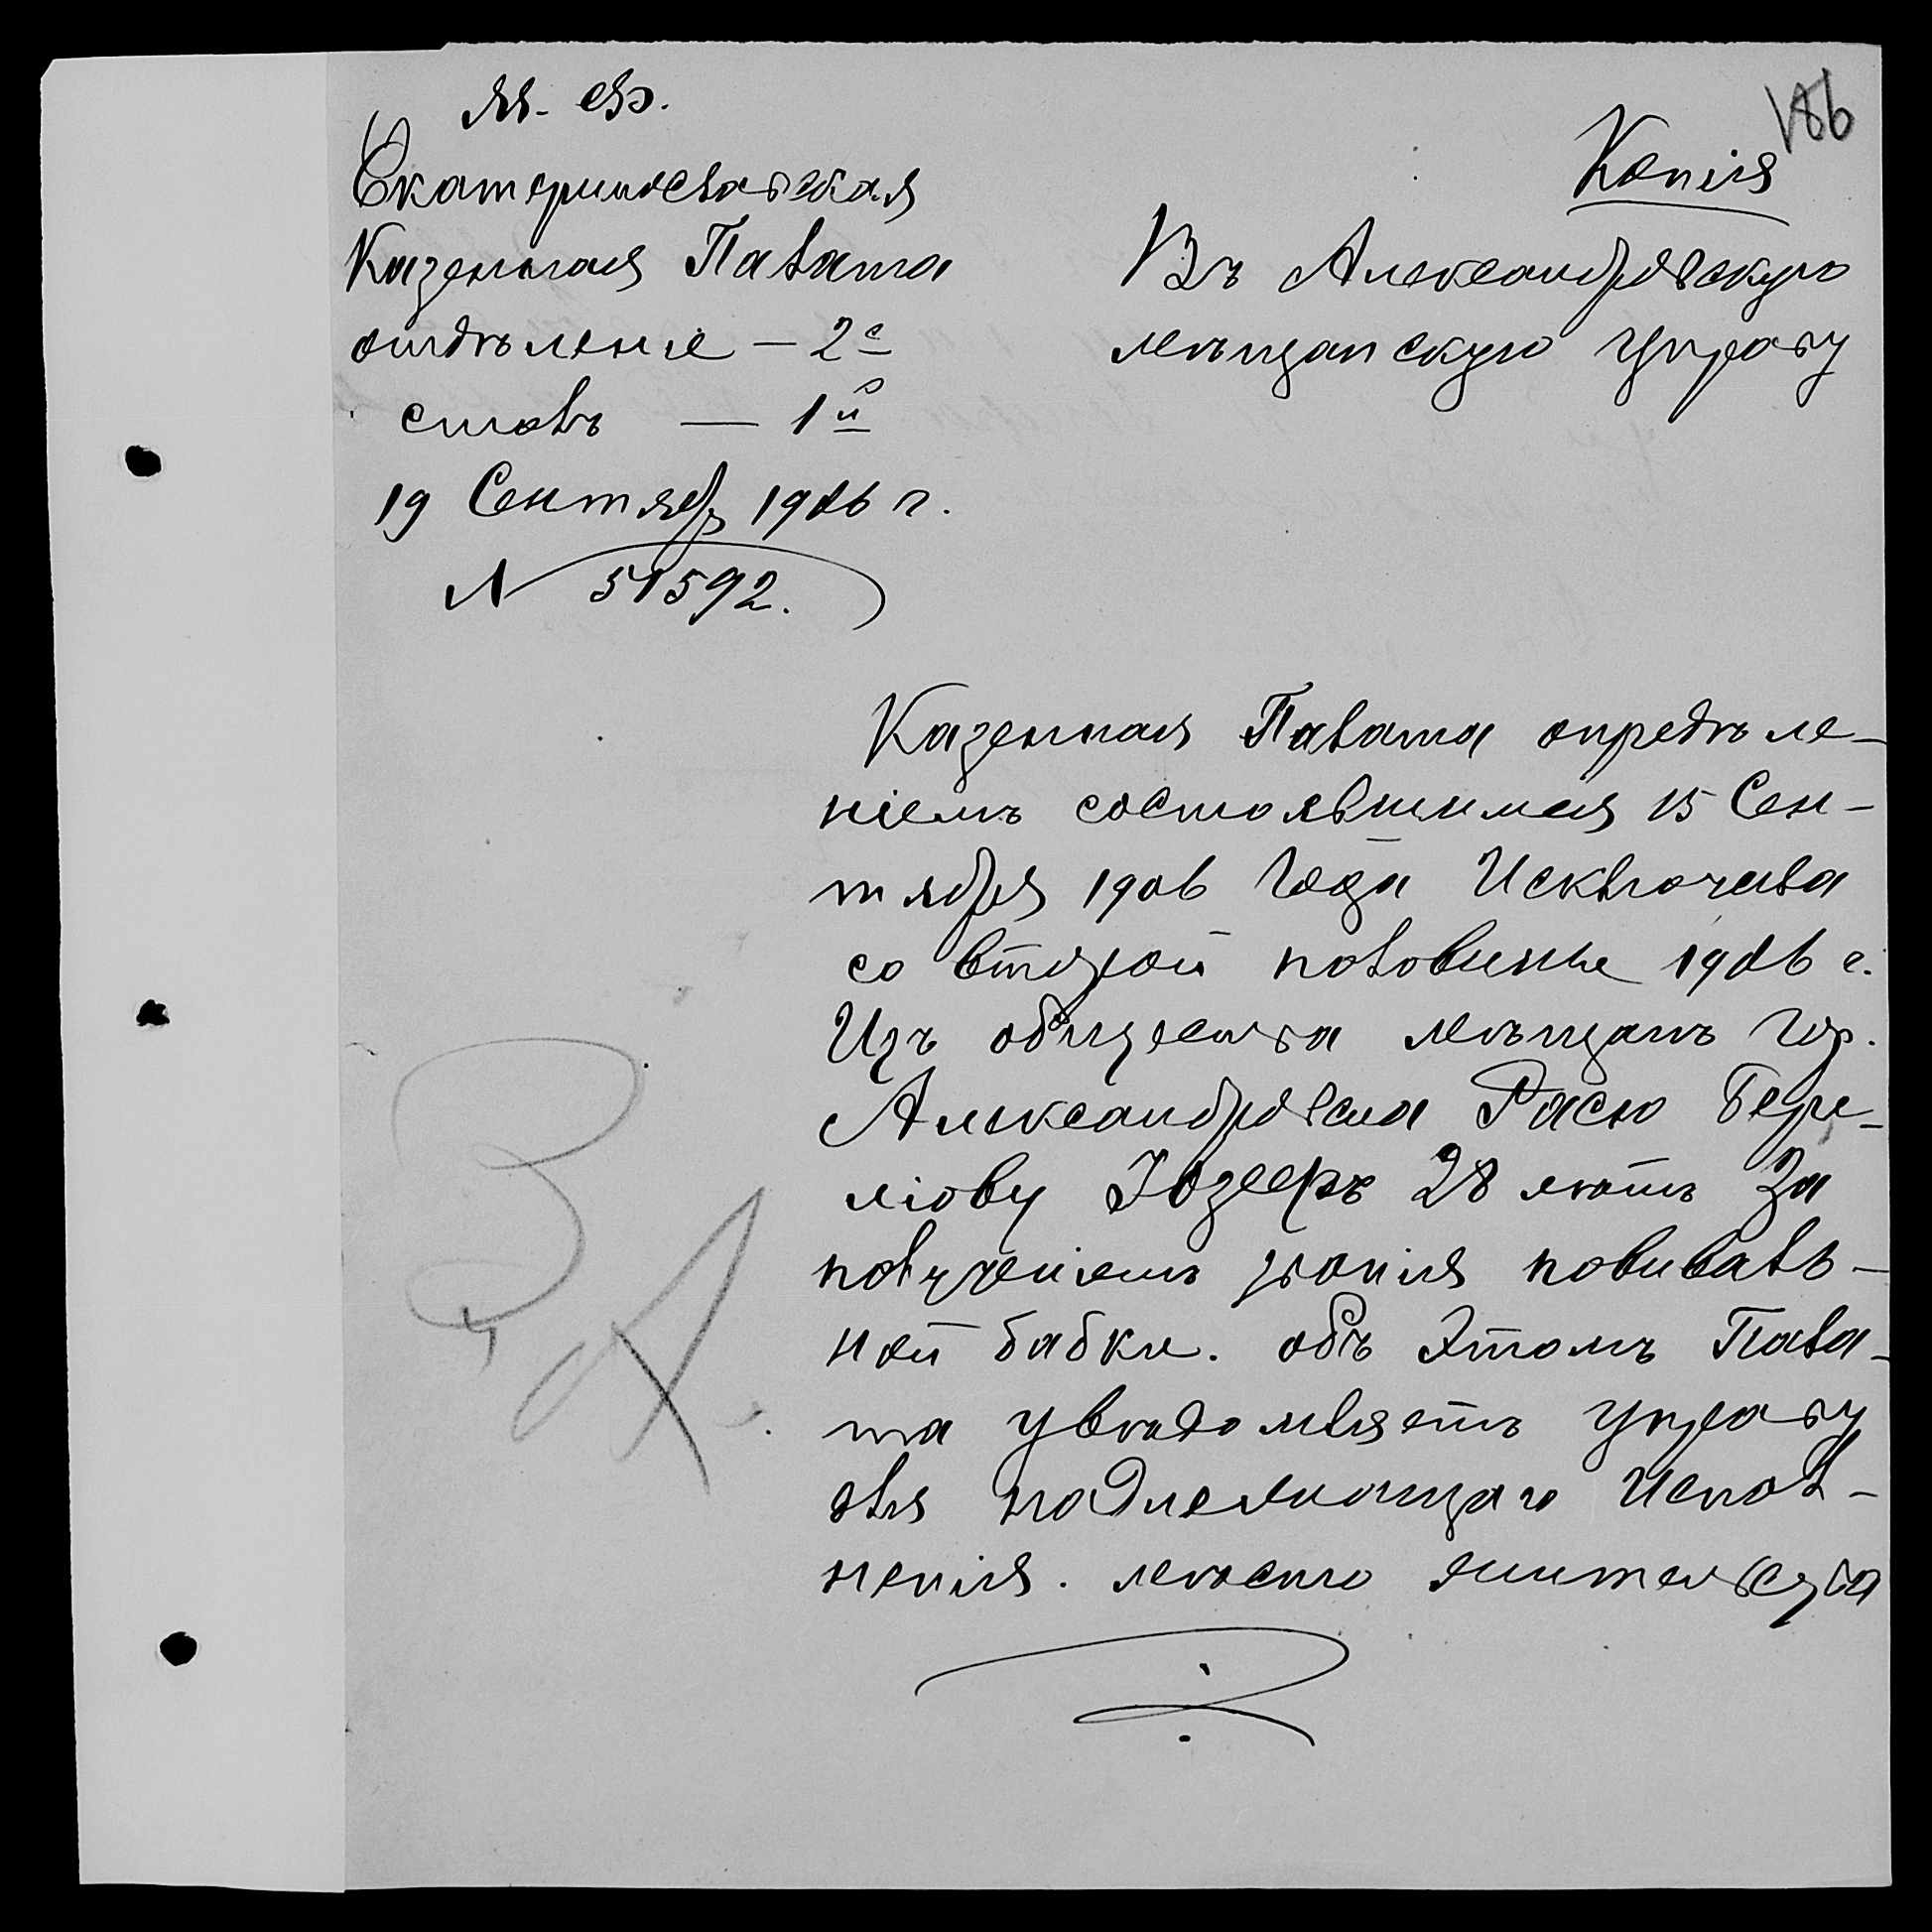 М. Ф.
186
Екатеринославская
Казенная Палата
отдѣленіе — 2е
столъ — 1й
19 Сентябр 1906 г.
№ 51592.
Копія
Въ Александровскую
мѣщанскую управу
Казенная Палата опредѣле-
ніемъ состоявшимся 15 Сен-
тября 1906 Года Исключила
со второй половины 1906 г.
Изъ общества мѣщанъ гор.
Александровска Расю Бере-
лiову Юзефъ 28 лѣтъ За
полученіемъ званія повиваль-
ной бабки. объ Этомъ Пала-
та увѣдомляетъ управу
для надлежащаго Испол-
ненія. мѣсто жительства